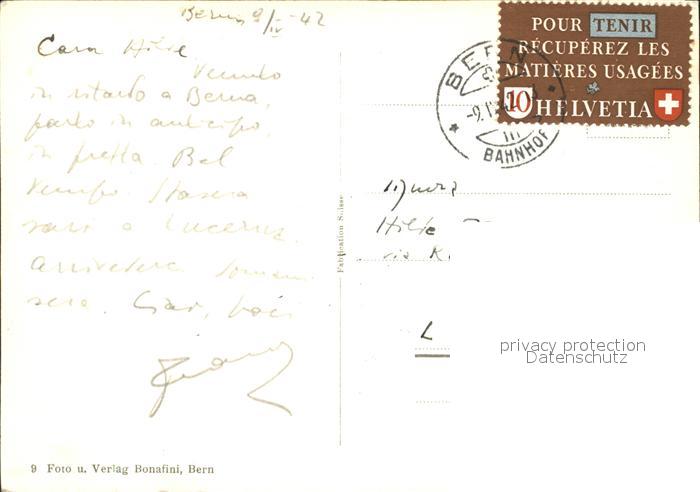 Berna 9/IV-42
Cara Hilde
Venuto
in ritardo a Berna,
parto in anticipo,
in fretta. Bel
tempo. Stasera
sarò a Lucerna.
Arrivederci domani
sera. Ciao, baci
POUR TENIR
RÉCUPÉREZ LES
MATIÈRES USAGÉES
10 HELVETIA
BERN
BAHNHOF
Fabrication Suisse
Hilde
via K.
L
privacy protection
Datenschutz
9 Foto u. Verlag Bonafini, Bern